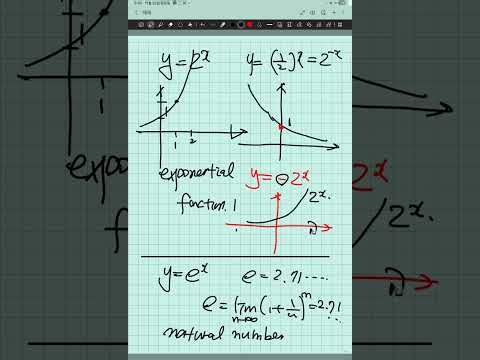 y=2^x
y=(1/2)^x=2^-x
1
1 2
1
exponential
function. 1
y=⊖2^x
2^x.
y=e^x
e=2.71....
e=lim n→∞ (1+1/n)^n=2.71...
natural number
2^x
2^x.